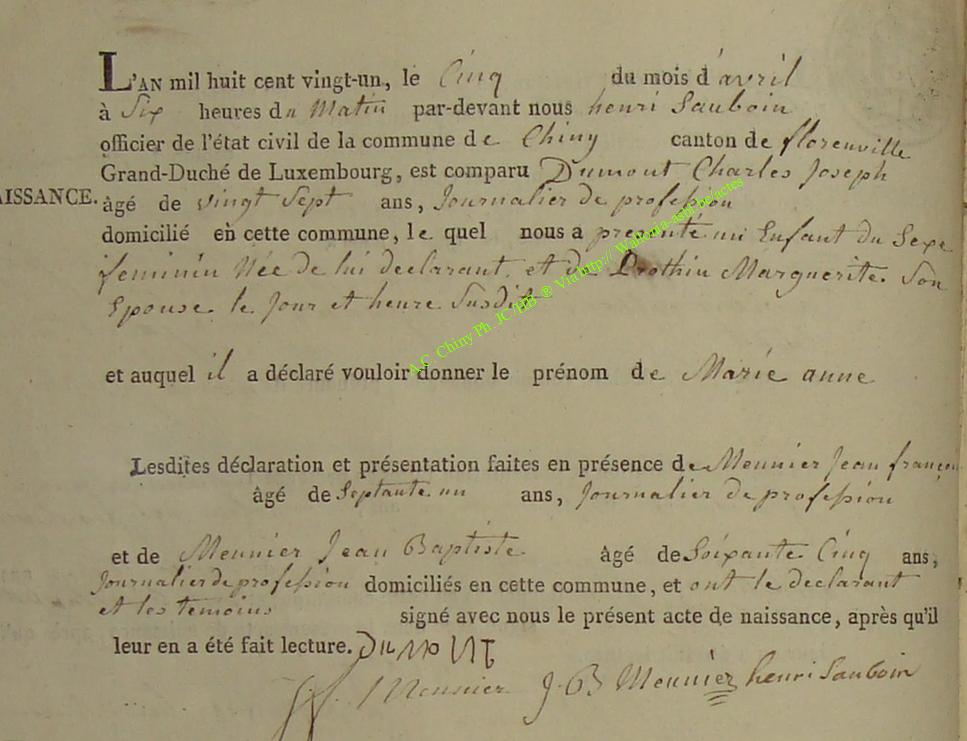 L'AN mil huit cent vingt-un, le Cinq du mois d'avril
à Six heures du Matin par-devant nous henri Sauboin
officier de l'état civil de la commune de Chiny canton de florenville
Grand-Duché de Luxembourg, est comparu Dumont Charles Joseph
AISSANCE. âgé de vingt Sept ans, Journalier de profession
domicilié en cette commune, le quel nous a présenté un Enfant du Sexe
feminin Née de lui declarant, et de Prothin Marguerite. Son
Epouse. le Jour et heure Susdits
A.C. Chiny Ph. JC/HB @ Via http:// Wallonia-asbl.be/actes
et auquel il a déclaré vouloir donner le prénom de Marie anne
Lesdites déclaration et présentation faites en présence de Meunier Jean françois
âgé de Septante un ans, Journalier de profession
et de Meunier Jean Baptiste âgé de Soixante Cinq ans,
Journalier de profession domiciliés en cette commune, et ont le declarant
et les temoins signé avec nous le présent acte de naissance, après qu'il
leur en a été fait lecture. DUMONT
Meunier J. B Meunier henri Sauboin